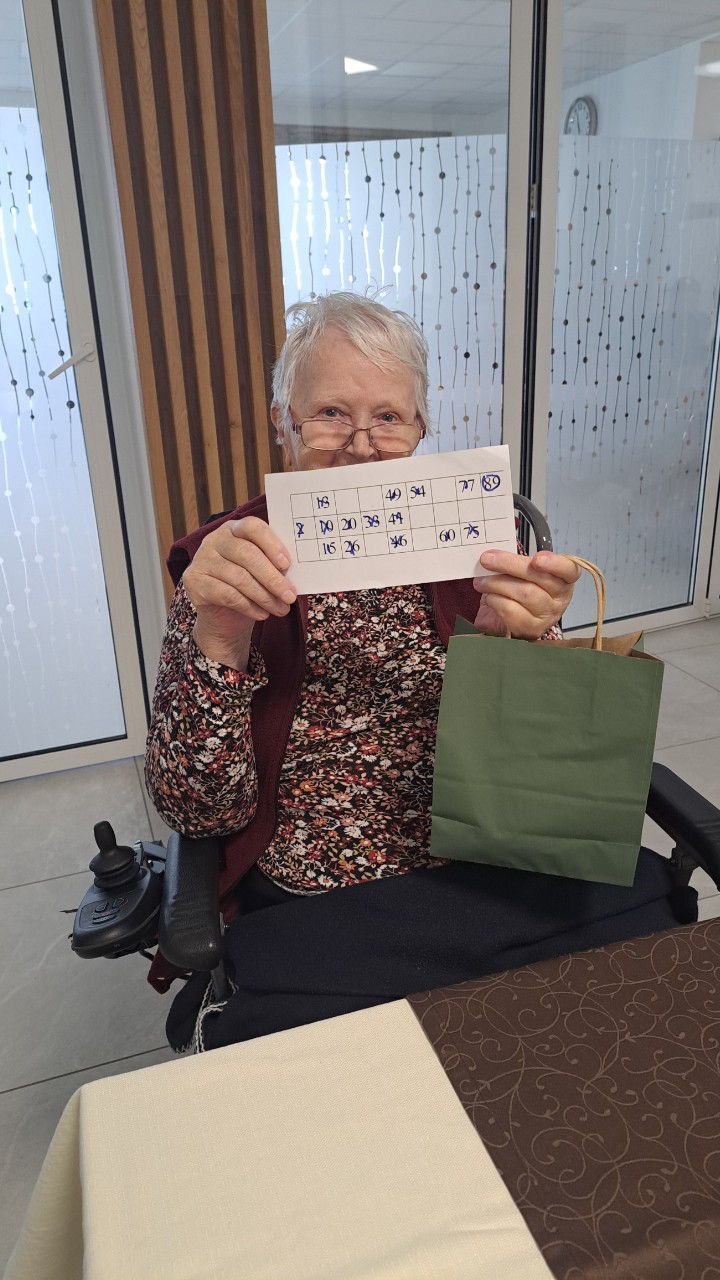 18 49 54 77 89
2 10 20 38 44
16 26 46 60 75